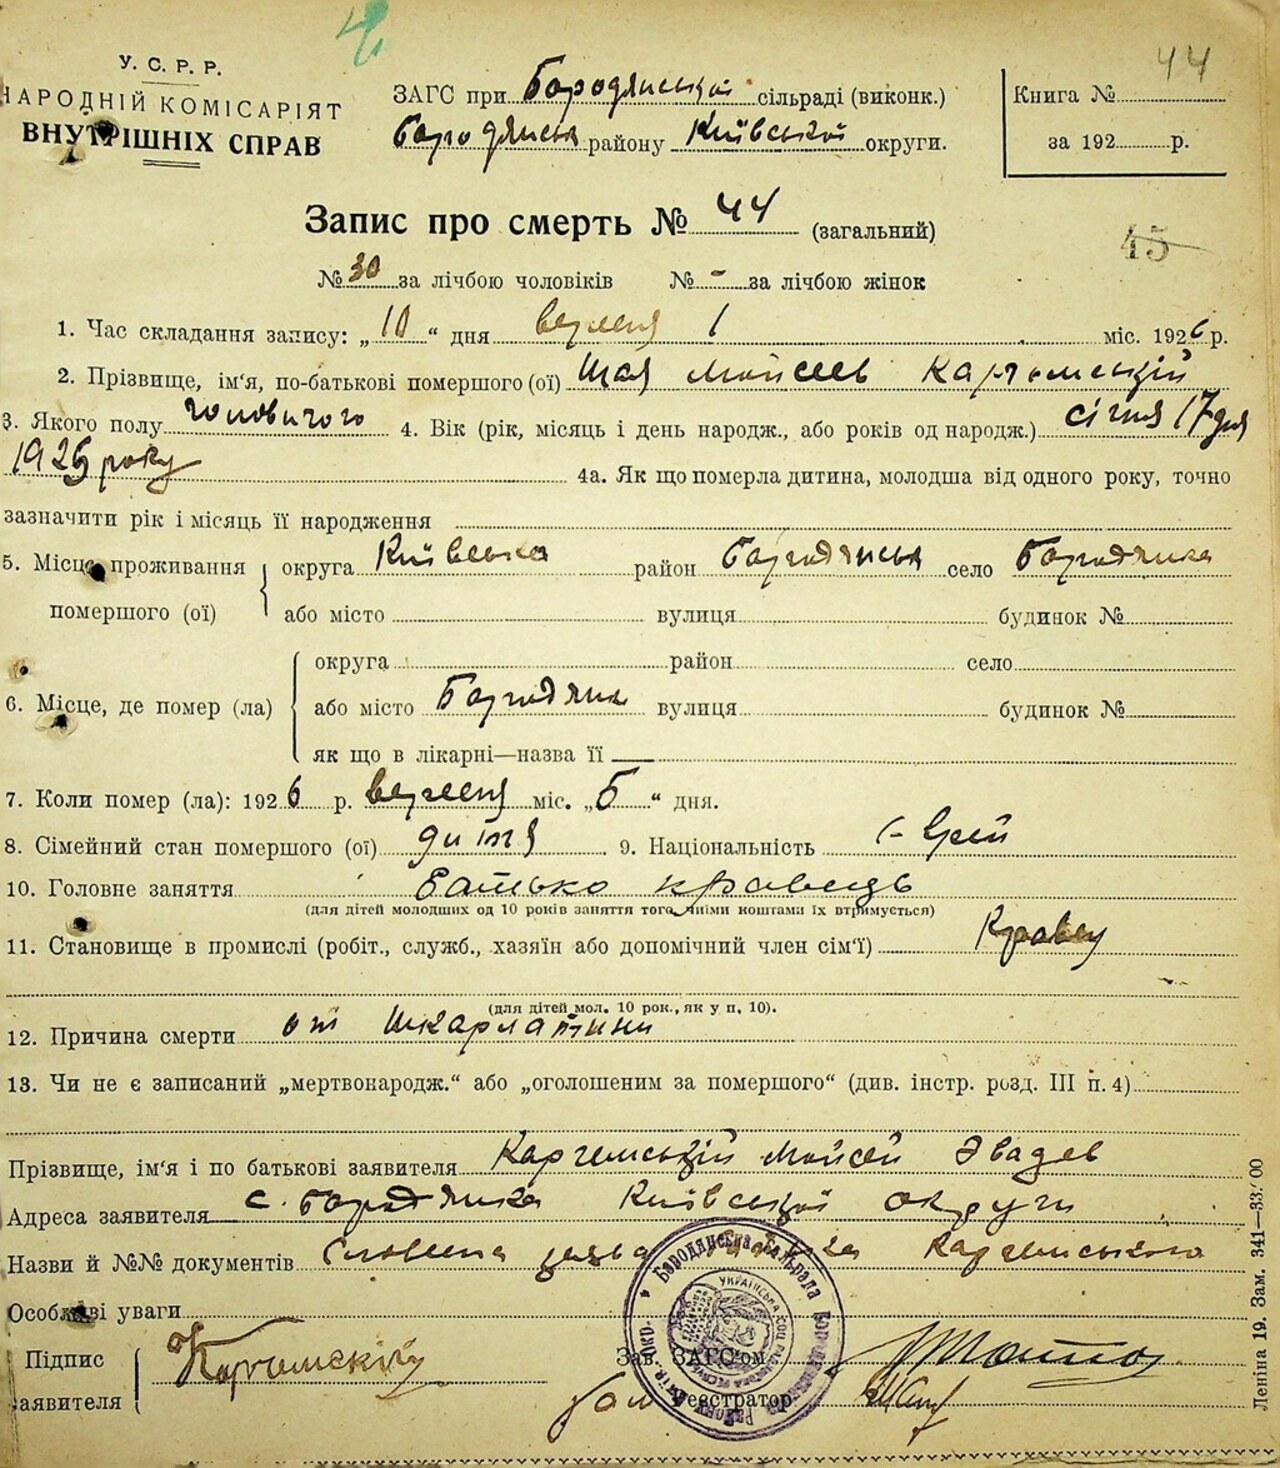 44
У. С. Р. Р.
НАРОДНІЙ КОМІСАРІЯТ
ВНУТРІШНІХ СПРАВ
ЗАГС при Бородянській сільраді (виконк.)
Бородянськ району Київської округи.
Книга №
за 192 р.
Запис про смерть № 44 (загальний)
45
№ 30 за лічбою чоловіків № - за лічбою жінок
1. Час складання запису: „10“ дня вересня 1 міс. 1926 р.
2. Прізвище, ім‘я, по-батькові помершого (ої) Шая Мойсеев
3. Якого полу чоловичого 4. Вік (рік, місяць і день народж., або років од народж.) січня 17 дня
1926 року
4а. Як що померла дитина, молодша від одного року, точно
зазначити рік і місяць її народження
5. Місце проживання помершого (ої) округа Київська район Бородянськ село Бородянка
або місто вулиця будинок №
6. Місце, де помер (ла) округа район село
або місто Бородянка вулиця будинок №
як що в лікарні—назва її
7. Коли помер (ла): 1926 р. вересня міс. „5“ дня.
8. Сімейний стан помершого (ої) дитя 9. Національність Єврей
10. Головне заняття батько кравець
(для дітей молодших од 10 років заняття того, чиїми коштами їх втримується)
11. Становище в промислі (робіт., служб., хазяїн або допомічний член сім‘ї)
(для дітей мол. 10 рок., як у п. 10).
12. Причина смерти от шкарлатини
13. Чи не є записаний „мертвонародж.“ або „оголошеним за помершого“ (див. інстр. розд. III п. 4)
Прізвище, ім‘я і по батькові заявителя Мойсей
Адреса заявителя с. Бородянка Київської округи
Назви й №№ документів Словесна заява
Особливі уваги
Підпис заявителя
Зав. ЗАГС‘ом
Реєстратор
Леніна 19. Зам. 341—33.000